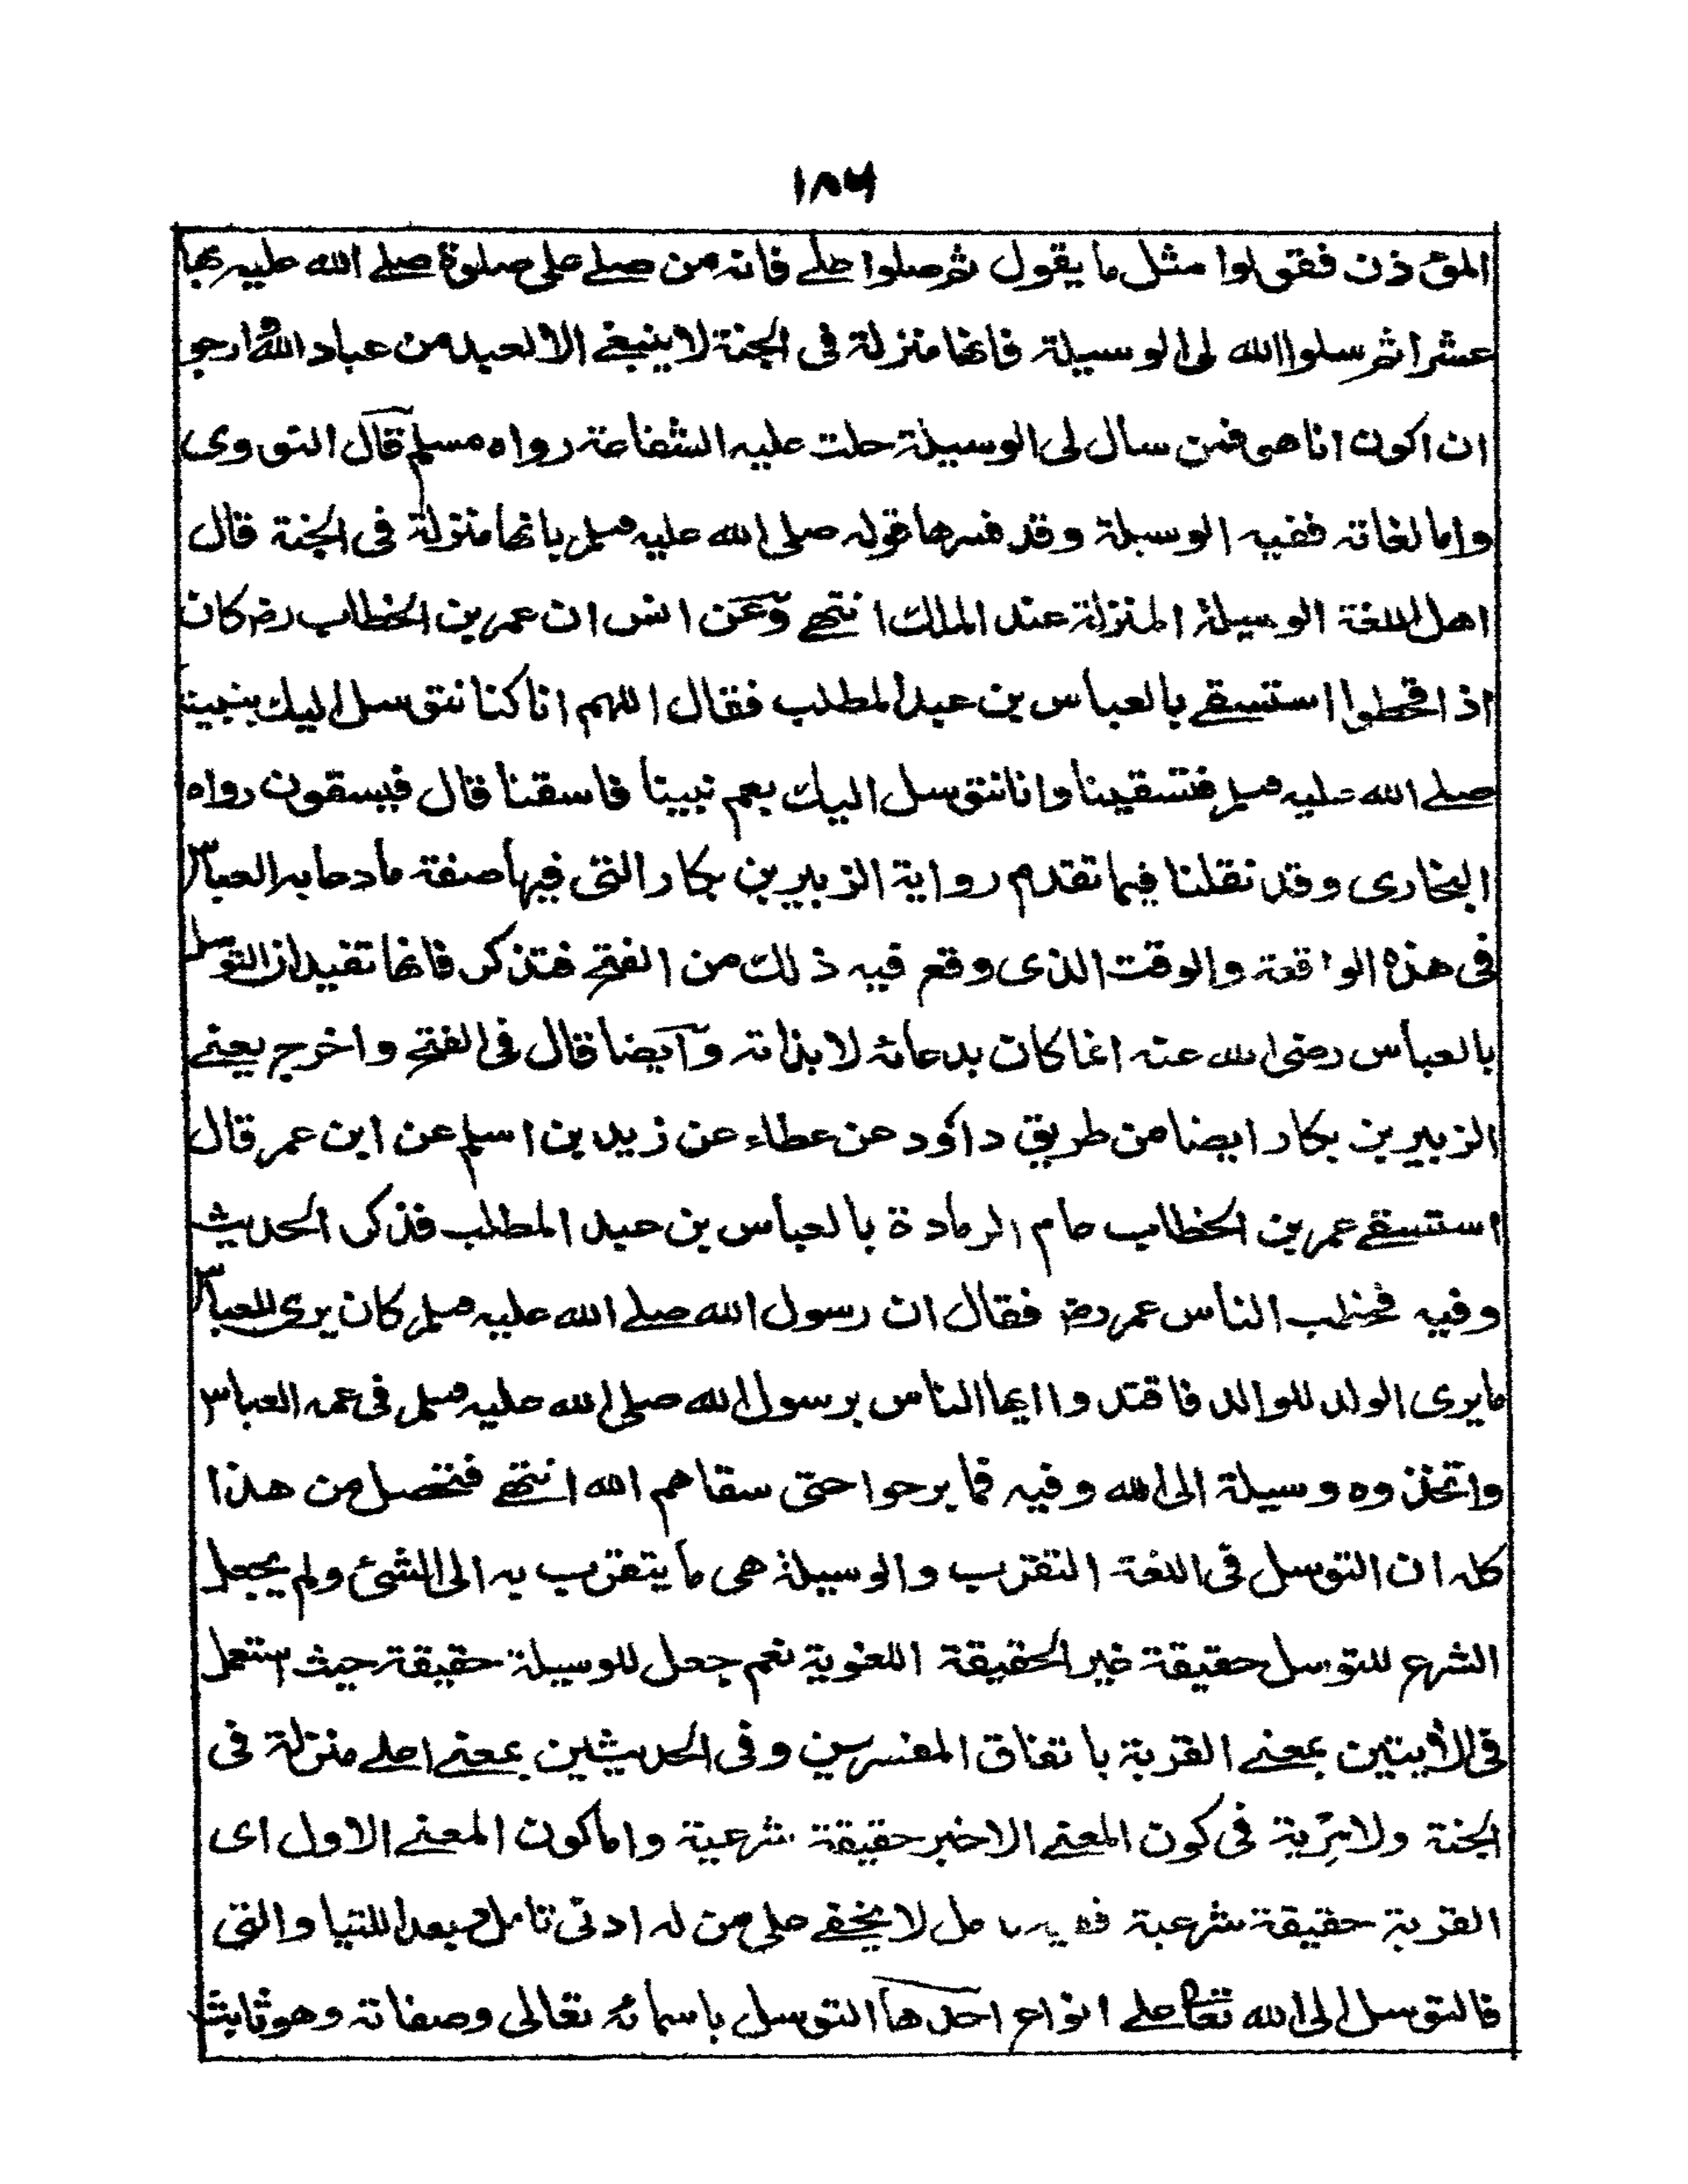 ١٨٦
المؤذن فقولوا مثل ما يقول ثم صلوا علے فانه من صلے علی صلوة صلے الله عليه بها
عشرا ثم سلوا الله لی الوسيلة فانها منزلة فی الجنة لا ينبغے الا لعبد من عباد الله وارجو
ان اكون انا هو فمن سال لی الوسيلة حلت عليه الشفاعة رواه مسلم قال النووی
واما لغاته ففيه الوسيلة وقد فسرها قوله صلی الله عليه وسلم بانها منزلة فی الجنة قال
اهل اللغة الوسيلة المنزلة عند الملك انتهے وعن انس ان عمر بن الخطاب رض كان
اذا قحطوا استسقے بالعباس بن عبد المطلب فقال اللهم انا كنا نتوسل اليك بنبينا
صلے الله عليه وسلم فتسقينا وانا نتوسل اليك بعم نبينا فاسقنا قال فيسقون رواه
البخاری وقد نقلنا فيما تقدم رواية الزبير بن بكار التی فيها صفة ما دعا به العباس
فی هذه الواقعة والوقت الذی وقع فيه ذلك من الفتح فتذكر فانها تفيد ان التوسل
بالعباس رضی الله عنه انما كان بدعائه لا بذاته وايضا قال فی الفتح واخرج يعنے
الزبير بن بكار ايضا من طريق داؤد عن عطاء عن زيد بن اسلم عن ابن عمر قال
استسقے عمر بن الخطاب عام الرمادة بالعباس بن عبد المطلب فذكر الحديث
وفيه فخطب الناس عمر رض فقال ان رسول الله صلے الله عليه وسلم كان يری للعباس
ما يری الولد للوالد فاقتدوا ايها الناس برسول الله صلی الله عليه وسلم فی عمه العباس
واتخذوه وسيلة الی الله وفيه فما برحوا حتی سقاهم الله انتهے فتحصل من هذا
كله ان التوسل فی اللغة التقرب والوسيلة هی ما يتقرب به الی الشئ ولم يجعل
الشرع للتوسل حقيقة غير الحقيقة اللغوية نعم جعل للوسيلة حقيقة حيث استعمل
فی الأيتين بمعنے القربة باتفاق المفسرين وفی الحديثين بمعنے اعلے منزلة فی
الجنة ولا مرية فی كون المعنے الاخير حقيقة شرعية واما كون المعنے الاول ای
القربة حقيقة شرعية ففيه تامل لا يخفے علی من له ادنی تامل وبعد اللتيا والتی
فالتوسل الی الله تعالی علے انواع احدها التوسل باسمائه تعالی وصفاته وهو ثابت